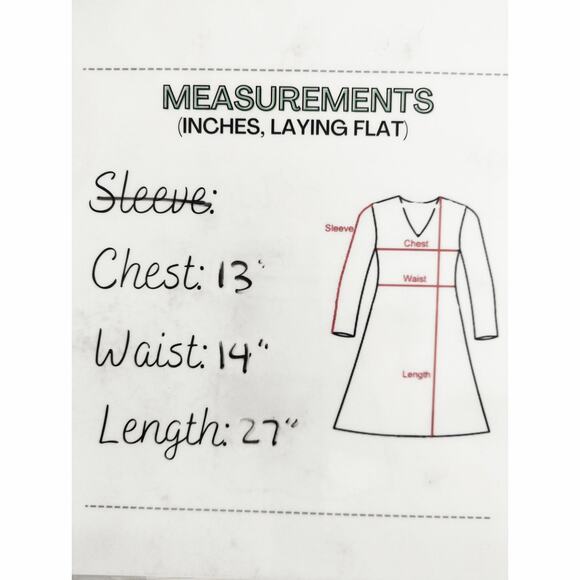 MEASUREMENTS
(INCHES, LAYING FLAT)
Sleeve:
Chest: 13"
Waist: 14"
Length: 27"
Sleeve
Chest
Waist
Length